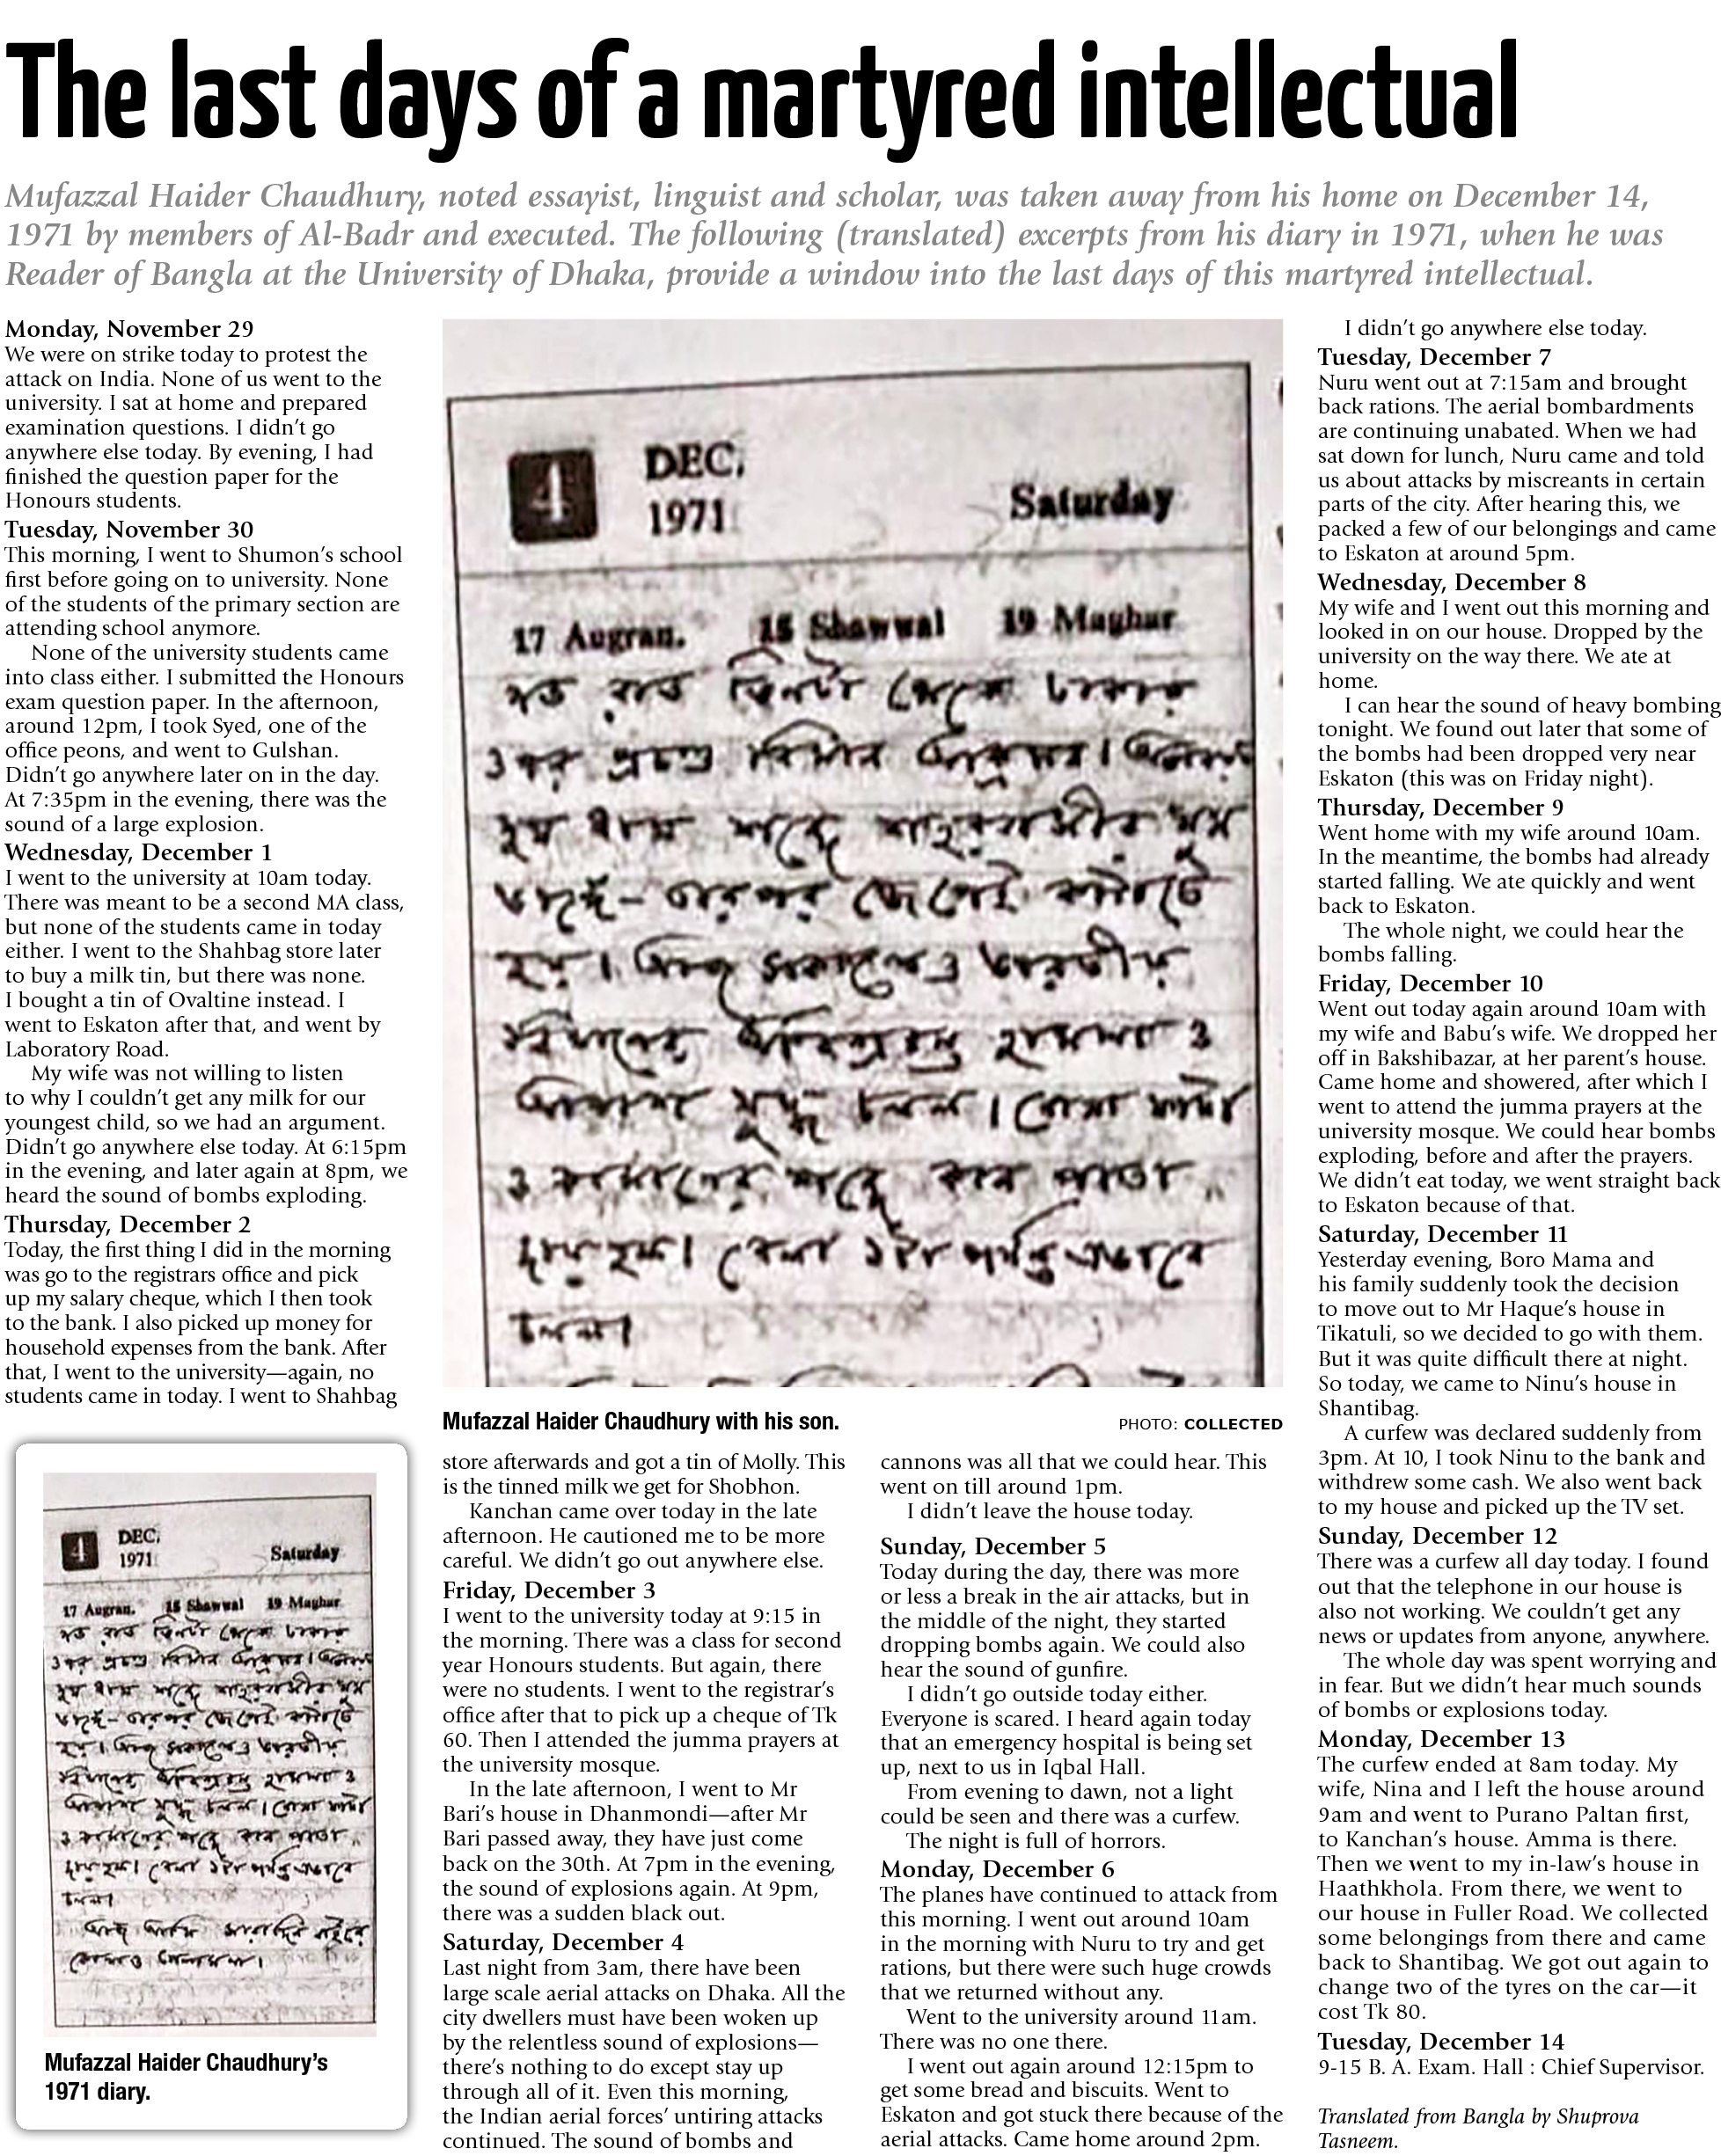 The last days of a martyred intellectual
Mufazzal Haider Chaudhury, noted essayist, linguist and scholar, was taken away from his home on December 14,
1971 by members of Al-Badr and executed. The following (translated) excerpts from his diary in 1971, when he was
Reader of Bangla at the University of Dhaka, provide a window into the last days of this martyred intellectual.
Monday, November 29
We were on strike today to protest the
attack on India. None of us went to the
university. I sat at home and prepared
examination questions. I didn't go
anywhere else today. By evening, I had
finished the question paper for the
Honours students.
Tuesday, November 30
This morning, I went to Shumon's school
first before going on to university. None
of the students of the primary section are
attending school anymore.
None of the university students came
into class either. I submitted the Honours
exam question paper. In the afternoon,
around 12pm, I took Syed, one of the
office peons, and went to Gulshan.
Didn't go anywhere later on in the day.
At 7:35pm in the evening, there was the
sound of a large explosion.
Wednesday, December 1
I went to the university at 10am today.
There was meant to be a second MA class,
but none of the students came in today
either. I went to the Shahbag store later
to buy a milk tin, but there was none.
I bought a tin of Ovaltine instead. I
went to Eskaton after that, and went by
Laboratory Road.
My wife was not willing to listen
to why I couldn't get any milk for our
youngest child, so we had an argument.
Didn't go anywhere else today. At 6:15pm
in the evening, and later again at 8pm, we
heard the sound of bombs exploding.
Thursday, December 2
Today, the first thing I did in the morning
was go to the registrars office and pick
up my salary cheque, which I then took
to the bank. I also picked up money for
household expenses from the bank. After
that, I went to the university—again, no
students came in today. I went to Shahbag
4 DEC. 1971 Saturday
17 Augran. 15 Shawwal 19 Maghar
গত রাত তিনটা থেকে ঢাকার
ওপর প্রচণ্ড বিমান আক্রমণ।
শব্দে শহরবাসীর ঘুম
হয়। আজ সকালেও ভারতীয়
বিমানের হামলা ও
যুদ্ধ চলল।
ও কামানের শব্দে কান পাতা
দায় হল। বেলা ১টা পর্যন্ত এভাবে
চলল।
Mufazzal Haider Chaudhury with his son.
PHOTO: COLLECTED
4 DEC. 1971 Saturday
17 Augran. 15 Shawwal 19 Maghar
Mufazzal Haider Chaudhury's
1971 diary.
store afterwards and got a tin of Molly. This
is the tinned milk we get for Shobhon.
Kanchan came over today in the late
afternoon. He cautioned me to be more
careful. We didn't go out anywhere else.
Friday, December 3
I went to the university today at 9:15 in
the morning. There was a class for second
year Honours students. But again, there
were no students. I went to the registrar's
office after that to pick up a cheque of Tk
60. Then I attended the jumma prayers at
the university mosque.
In the late afternoon, I went to Mr
Bari's house in Dhanmondi—after Mr
Bari passed away, they have just come
back on the 30th. At 7pm in the evening,
the sound of explosions again. At 9pm,
there was a sudden black out.
Saturday, December 4
Last night from 3am, there have been
large scale aerial attacks on Dhaka. All the
city dwellers must have been woken up
by the relentless sound of explosions—
there's nothing to do except stay up
through all of it. Even this morning,
the Indian aerial forces' untiring attacks
continued. The sound of bombs and
cannons was all that we could hear. This
went on till around 1pm.
I didn't leave the house today.
Sunday, December 5
Today during the day, there was more
or less a break in the air attacks, but in
the middle of the night, they started
dropping bombs again. We could also
hear the sound of gunfire.
I didn't go outside today either.
Everyone is scared. I heard again today
that an emergency hospital is being set
up, next to us in Iqbal Hall.
From evening to dawn, not a light
could be seen and there was a curfew.
The night is full of horrors.
Monday, December 6
The planes have continued to attack from
this morning. I went out around 10am
in the morning with Nuru to try and get
rations, but there were such huge crowds
that we returned without any.
Went to the university around 11am.
There was no one there.
I went out again around 12:15pm to
get some bread and biscuits. Went to
Eskaton and got stuck there because of the
aerial attacks. Came home around 2pm.
I didn't go anywhere else today.
Tuesday, December 7
Nuru went out at 7:15am and brought
back rations. The aerial bombardments
are continuing unabated. When we had
sat down for lunch, Nuru came and told
us about attacks by miscreants in certain
parts of the city. After hearing this, we
packed a few of our belongings and came
to Eskaton at around 5pm.
Wednesday, December 8
My wife and I went out this morning and
looked in on our house. Dropped by the
university on the way there. We ate at
home.
I can hear the sound of heavy bombing
tonight. We found out later that some of
the bombs had been dropped very near
Eskaton (this was on Friday night).
Thursday, December 9
Went home with my wife around 10am.
In the meantime, the bombs had already
started falling. We ate quickly and went
back to Eskaton.
The whole night, we could hear the
bombs falling.
Friday, December 10
Went out today again around 10am with
my wife and Babu's wife. We dropped her
off in Bakshibazar, at her parent's house.
Came home and showered, after which I
went to attend the jumma prayers at the
university mosque. We could hear bombs
exploding, before and after the prayers.
We didn't eat today, we went straight back
to Eskaton because of that.
Saturday, December 11
Yesterday evening, Boro Mama and
his family suddenly took the decision
to move out to Mr Haque's house in
Tikatuli, so we decided to go with them.
But it was quite difficult there at night.
So today, we came to Ninu's house in
Shantibag.
A curfew was declared suddenly from
3pm. At 10, I took Ninu to the bank and
withdrew some cash. We also went back
to my house and picked up the TV set.
Sunday, December 12
There was a curfew all day today. I found
out that the telephone in our house is
also not working. We couldn't get any
news or updates from anyone, anywhere.
The whole day was spent worrying and
in fear. But we didn't hear much sounds
of bombs or explosions today.
Monday, December 13
The curfew ended at 8am today. My
wife, Nina and I left the house around
9am and went to Purano Paltan first,
to Kanchan's house. Amma is there.
Then we went to my in-law's house in
Haathkhola. From there, we went to
our house in Fuller Road. We collected
some belongings from there and came
back to Shantibag. We got out again to
change two of the tyres on the car—it
cost Tk 80.
Tuesday, December 14
9-15 B. A. Exam. Hall : Chief Supervisor.
Translated from Bangla by Shuprova
Tasneem.